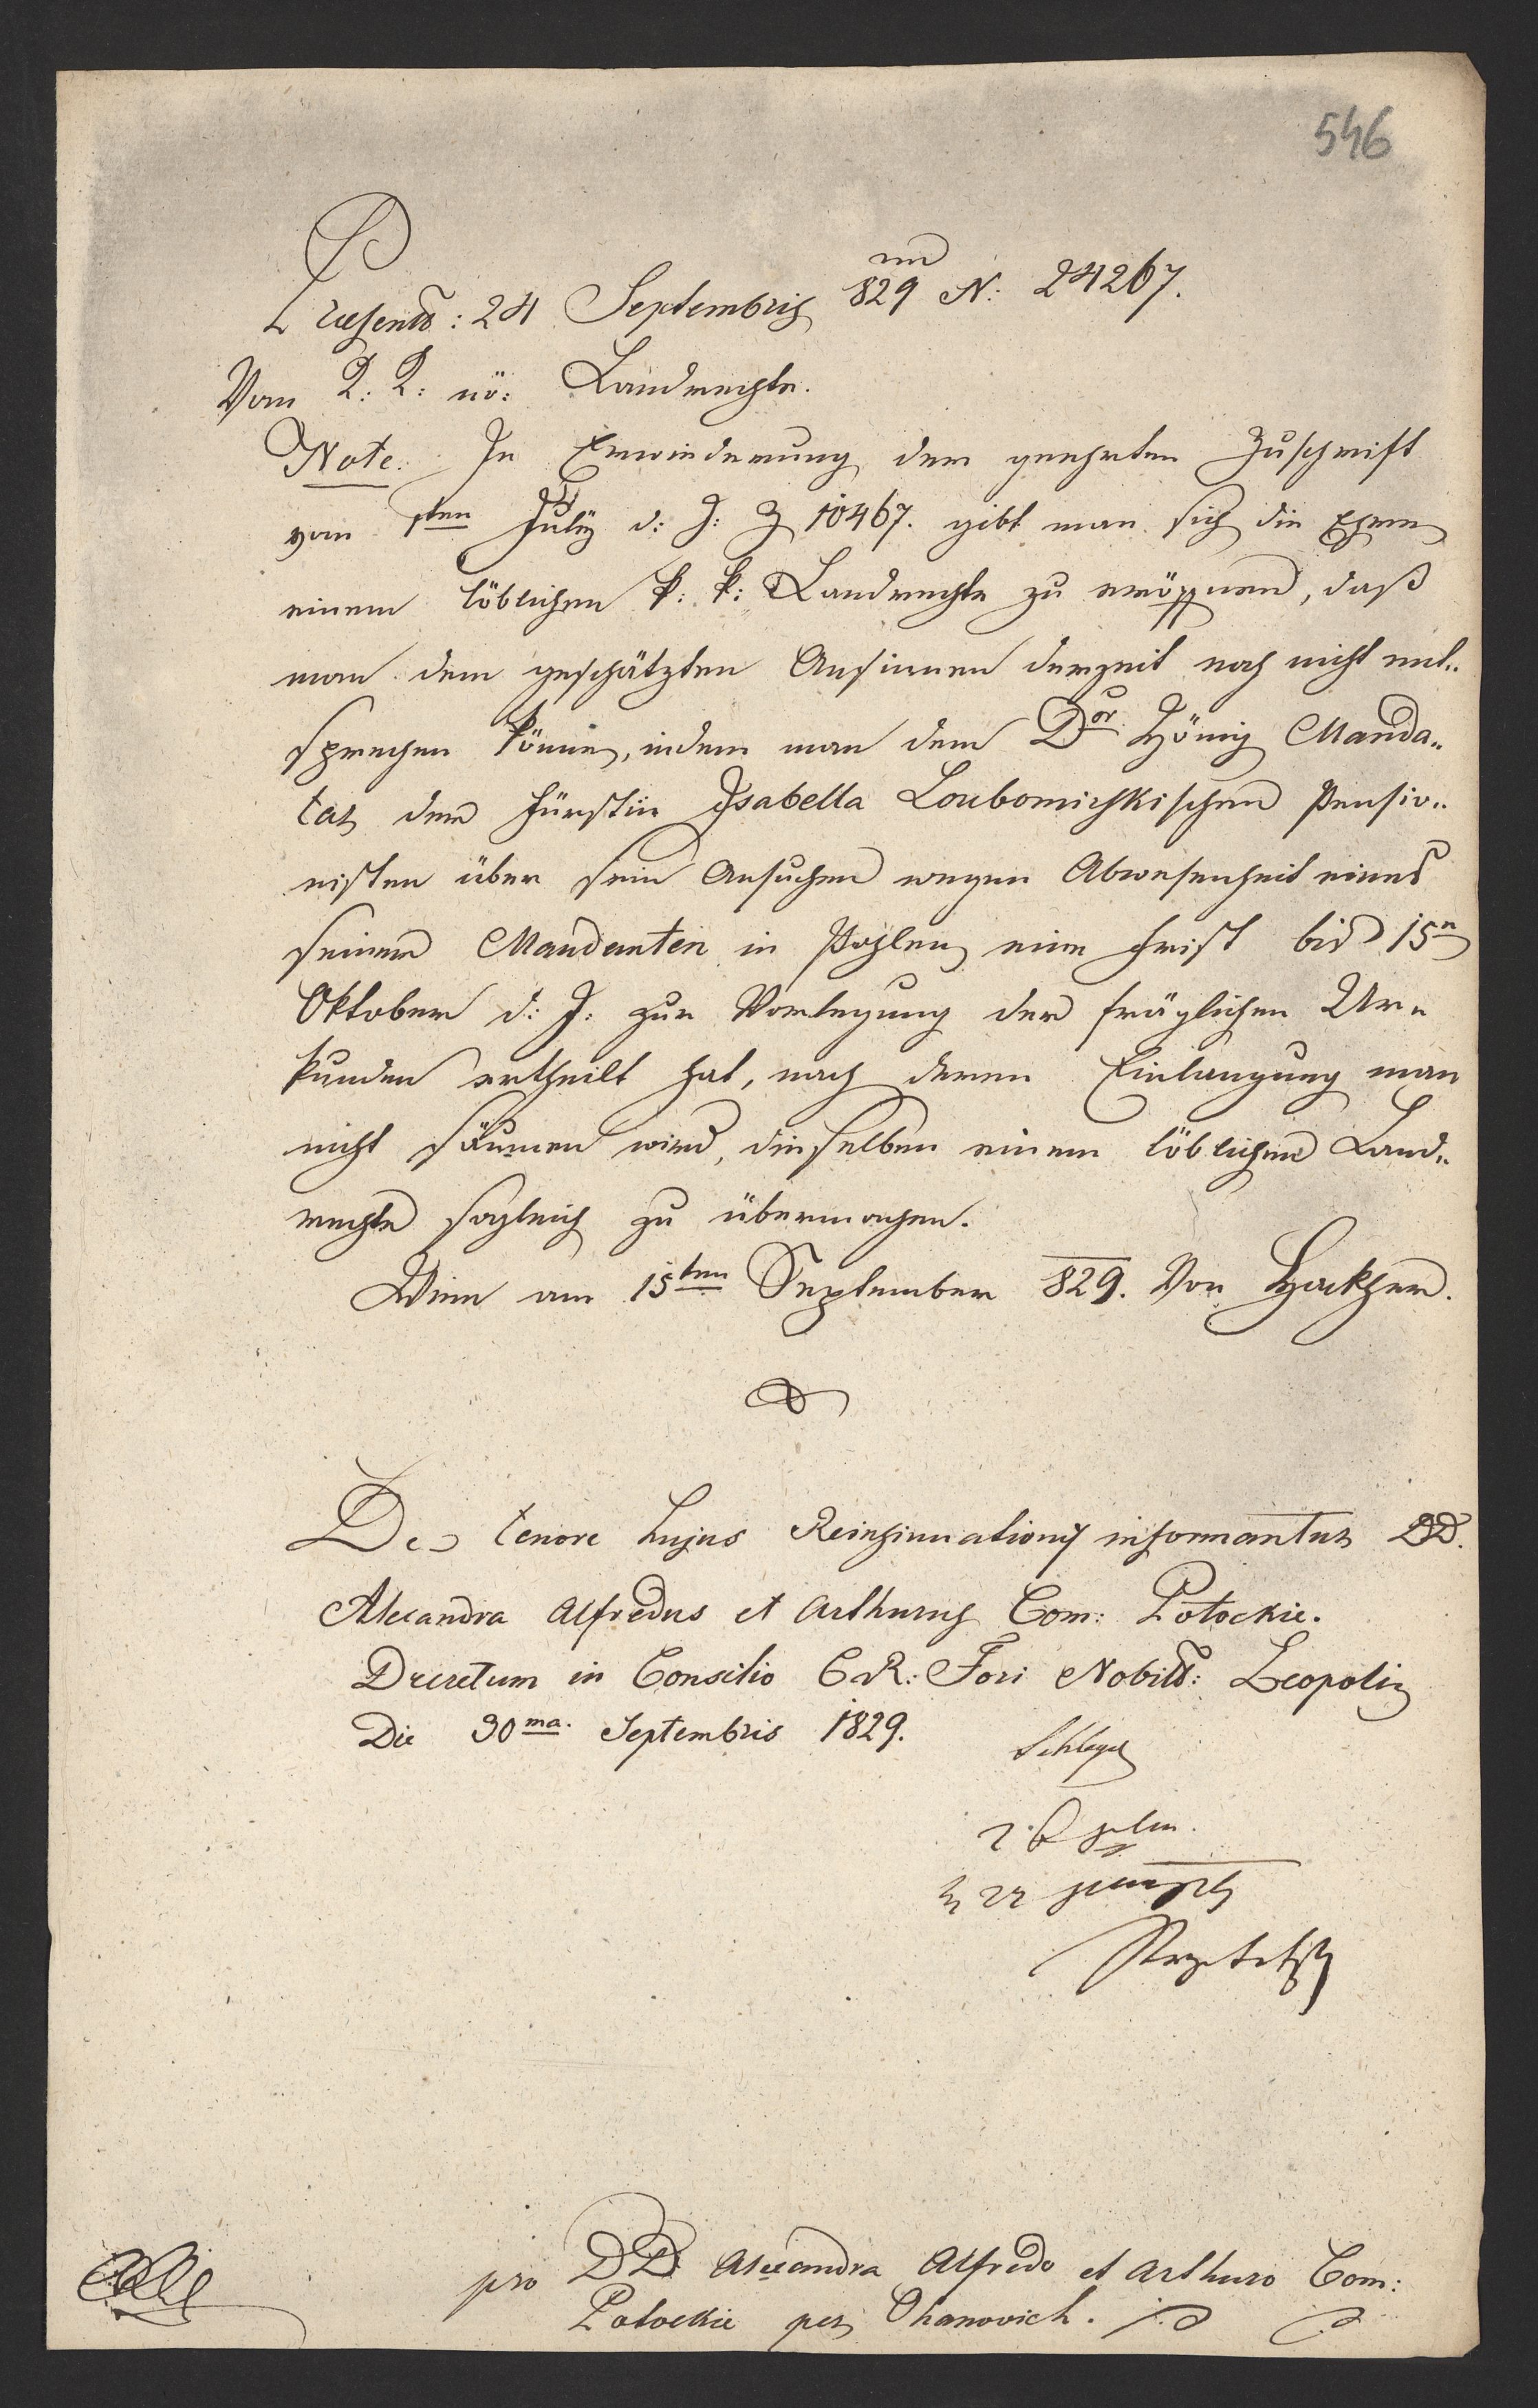 546
Praesent: 24 Septembris 829 N: 24267.
Vom K: K: nö: Landrechte.
Note. In Erwiederung der geehrten Zuschrift
vom 1ten July d: J: Z 10467. gibt man sich die Ehre
einem löblichen k: k: Landrechte zu eröffnen, daß
man dem geschätzten Ansinnen derzeit noch nicht ent„
sprechen könne, indem man dem Dor König Manda„
tar der Fürstin Isabella Loubomichkischen Pensio„
nisten über sein Ansuchen wegen Abwesenheit eines
seiner Mandanten in Pohlen eine Frist bis 15n
Oktober d: J: zur Vorlegung der fräglichen Ur„
kunden ertheilt hat, nach deren Einlangung man
nicht säumen wird, dieselben einem löblichen Land„
rechte sogleich zu übermachen.
Wien am 15ten September 829. Von Hackher.
De tenore hujus Reinsinuationis informantur DD.
Alexandra Alfredus et Arthurus Com: Potockie.
Decretum in Consilio C R: Fori Nobil: Leopolis
Die 30ma. Septembris 1829.
Schlegel
pro DD Alexandra Alfredo et Arthuro Com:
Potockie per Ohanovich.